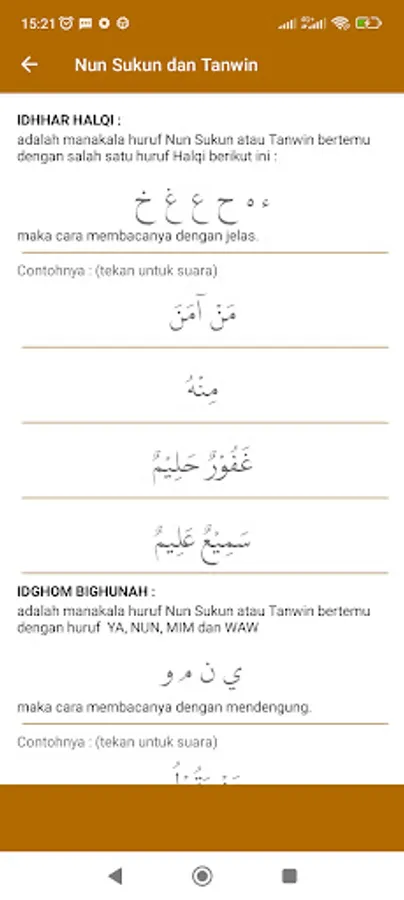 15:21
Nun Sukun dan Tanwin
IDHHAR HALQI :
adalah manakala huruf Nun Sukun atau Tanwin bertemu
dengan salah satu huruf Halqi berikut ini :
ء ه ح ع غ خ
maka cara membacanya dengan jelas.
Contohnya : (tekan untuk suara)
مَنْ آمَنَ
مِنْهُ
غَفُوْرٌ حَلِيْمٌ
سَمِيْعٌ عَلِيمٌ
IDGHOM BIGHUNAH :
adalah manakala huruf Nun Sukun atau Tanwin bertemu
dengan huruf YA, NUN, MIM dan WAW
ي ن م و
maka cara membacanya dengan mendengung.
Contohnya : (tekan untuk suara)